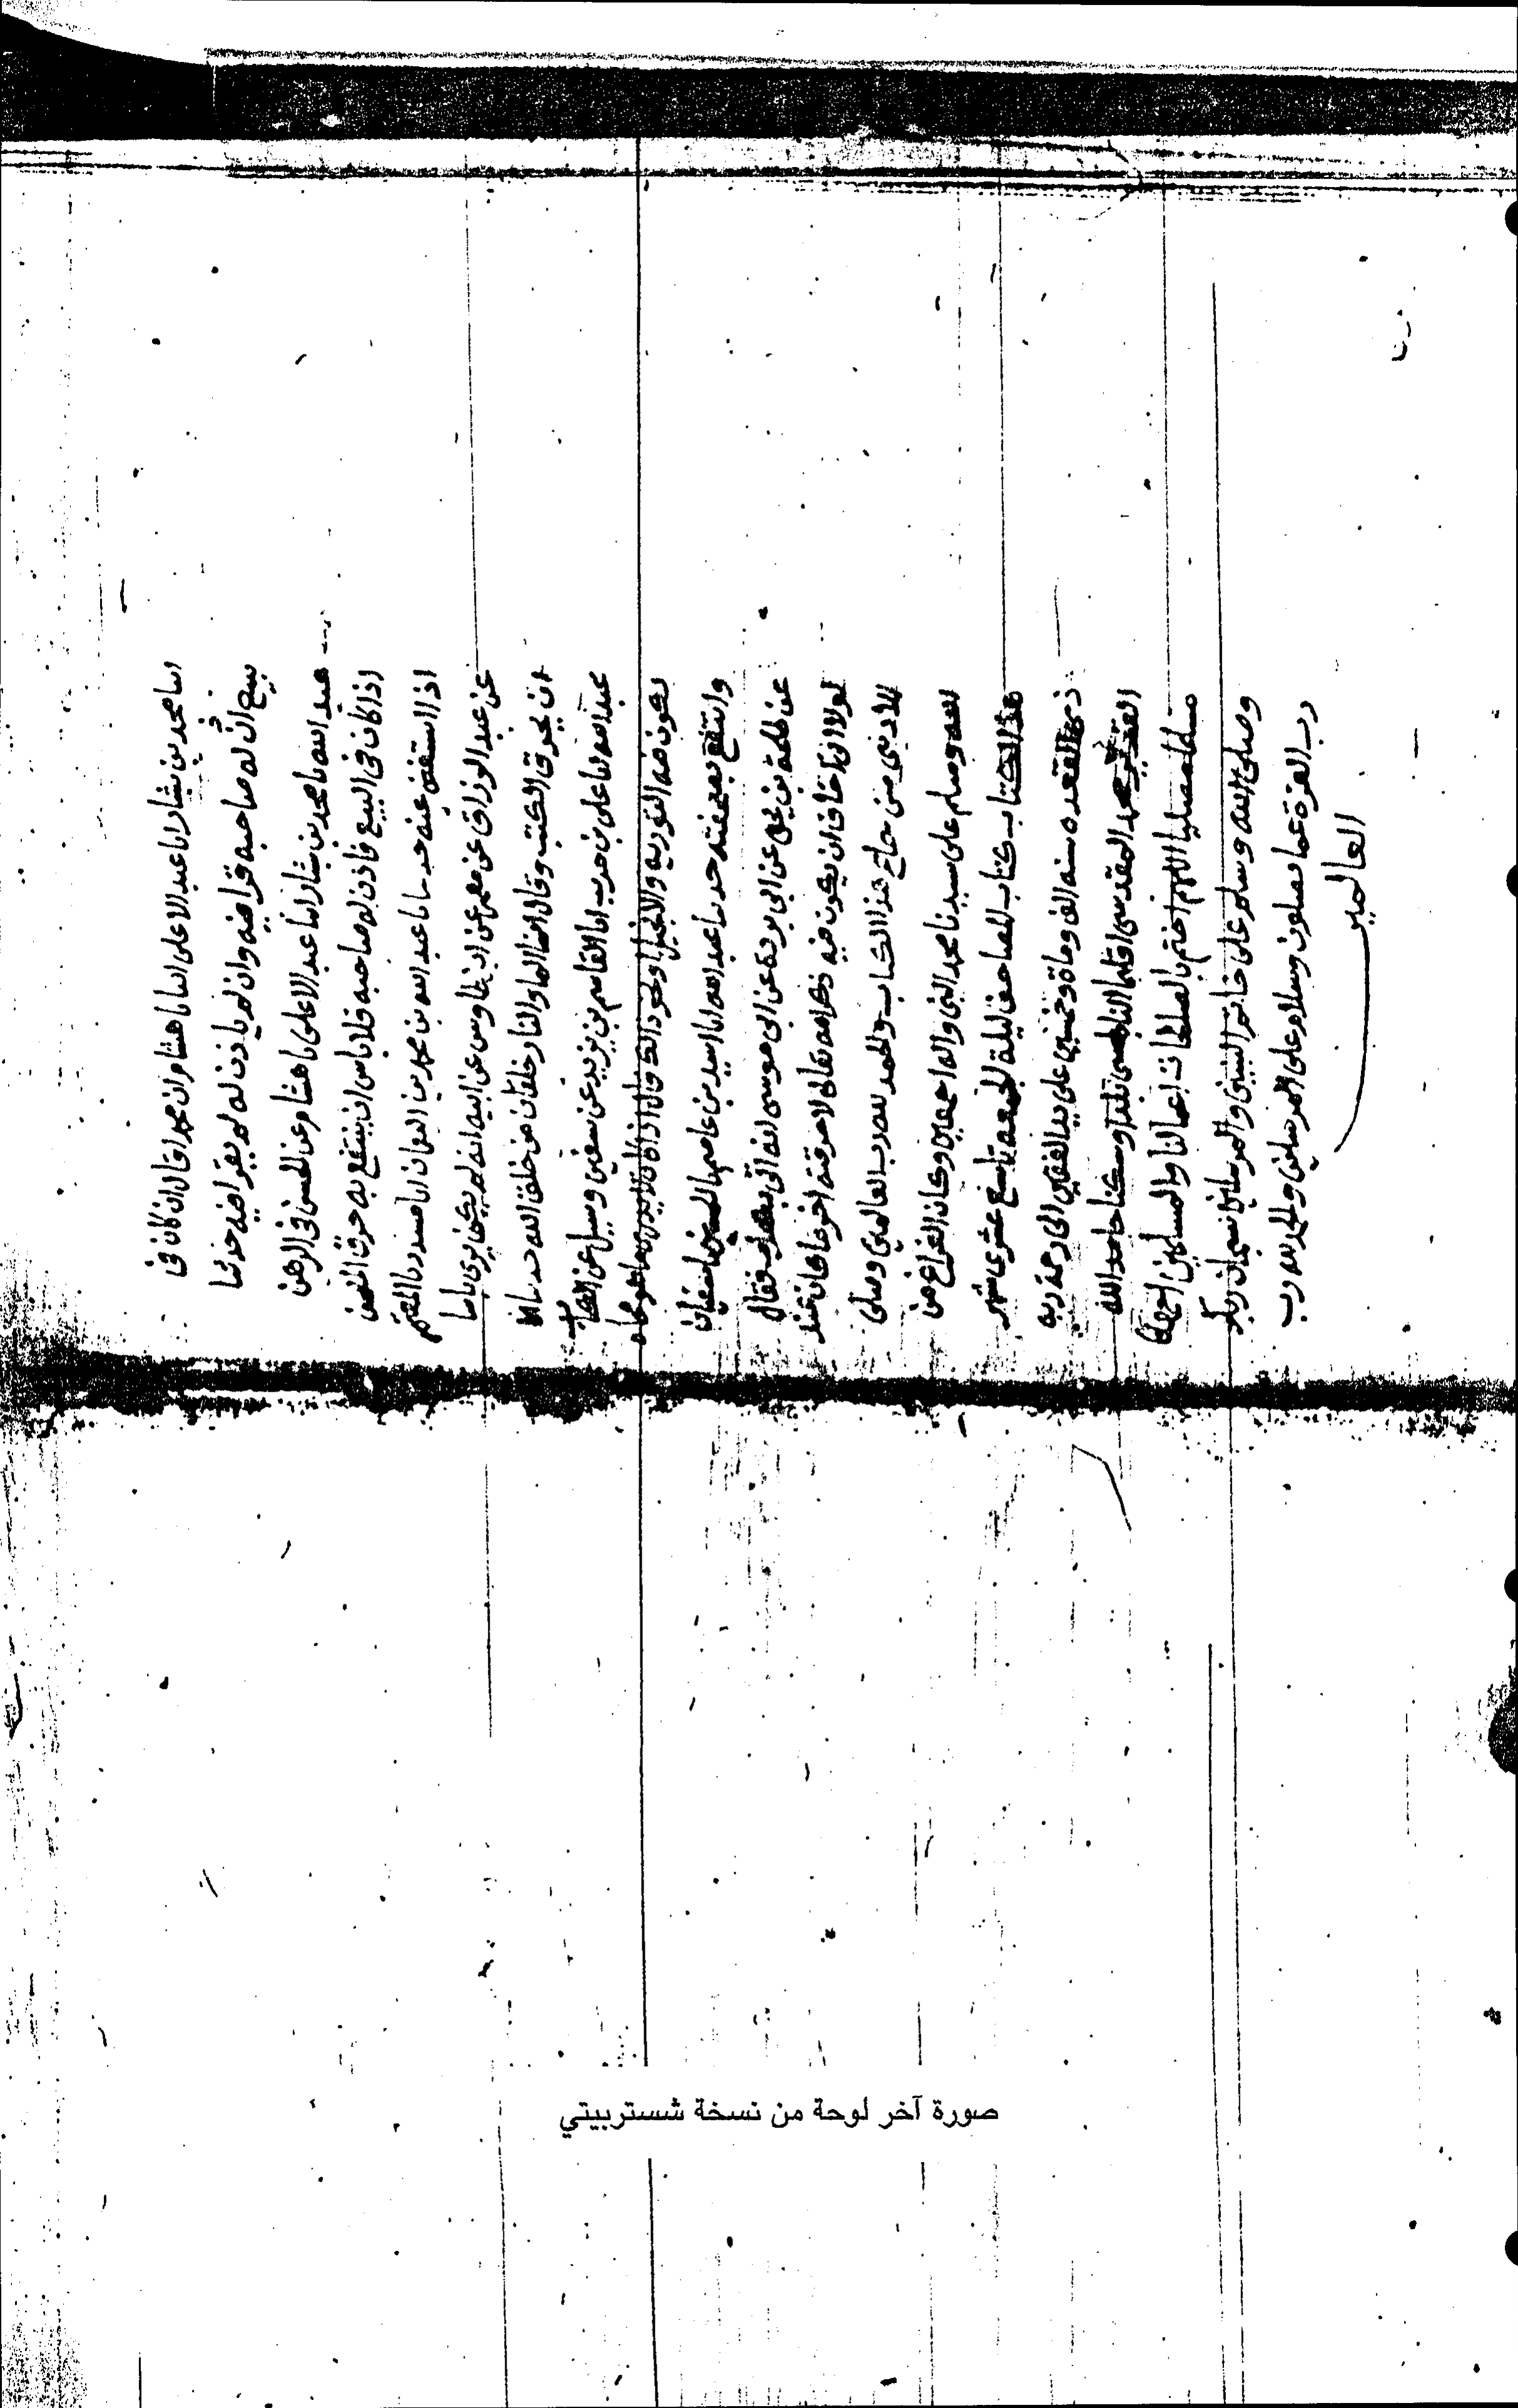 انبا محمد بن بشار انا عبد الاعلى انبا هشام ان محمدا قال ان كان في
بيع ان له صاحبه قراضيه وان لم ياذن له لم يقراضيه حدثنا
عبد الله نا محمد بن بشار انا عبد الاعلى نا هشام عن الحسن في الرهن
اذا كان في البيع فاذن له صاحبه فلا باس ان ينتفع به حرق المصحف
اذا استغنى عنه حدسا عبد الله بن محمد بن النعمان انا مسدد نا المعتمر
عن عبد الرزاق عن معمر عن ابن طاوس عن ابيه انه لم يكن يرى باسا
ان يحرق الكتب وقال انما الماء والنار خلقان من خلق الله حدسا
عبد الله انا على بن حرب انا القاسم بن يزيد عن سفين وسيل عن
يكون فيه التوريه والانجيل او نحو ذلك قال اذا كان
وانتفع حدسا عبد الله انا اسيد بن عاصم نا سفيان
عن طلحة بن يحيى عن ابي بردة عن ابي موسى انه اتى فقال
لولا اني اخاف ان يكون فيه ذكر الله تعالى لاحرقته اخر ما كان عند
لابن ابي هذا الكتاب والحمد لله رب العالمين وصلى
الله وسلم على سيدنا محمد النبي واله اجمعين وكان الفراغ من
هذا الكتاب كتاب المصاحف ليلة الجمعة تاسع عشرى شهر
ذي القعده سنه الف وماة وخمسين على يد الفقير الى رحمة ربه
القدير محمد المقدسى اقليما النابلسى بلدا وسكنا حامدا لله
مسلما مصليا اللهم اختم بالصالحات اعمالنا والمسلمين اجمعين
وصلى الله وسلم على خاتم النبيين والمرسلين سبحان ربك
رب العزة عما يصفون وسلام على المرسلين والحمد لله رب
العالمين
صورة آخر لوحة من نسخة شستربيتي